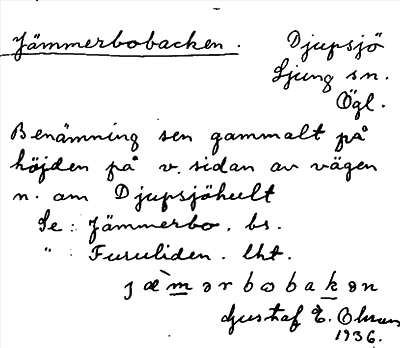 Jämmerbobacken. Djupsjö
Ljung sn.
Ögl.
Benämning sen gammalt på
höjden på v. sidan av vägen
n. om Djupsjöhult
Se: Jämmerbo, bs.
" : Furuliden. lht.
Gustaf E. Olsson
1936.